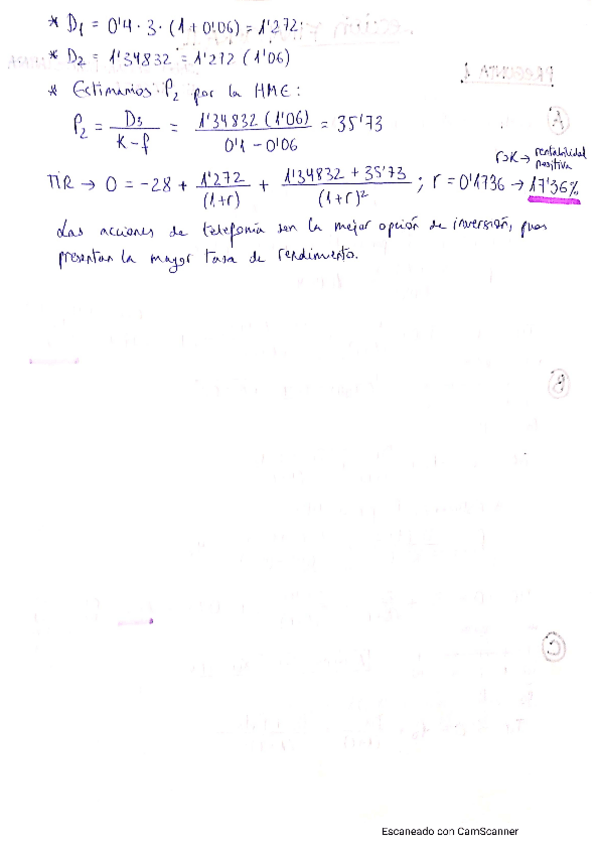 * D₁ = 0'4 · 3 · (1 + 0'06) = 1'272
* D₂ = 1'34832 = 1'272 (1'06)
* Estimamos P₂ por la HME:
P₂ = D₃ / K - f = 1'34832 (1'06) / 0'1 - 0'06 = 35'73
r>K → rentabilidad positiva
TIR → 0 = -28 + 1'272 / (1+r) + 1'34832 + 35'73 / (1+r)² ; r = 0'1736 → 17'36%
Las acciones de telefonía son la mejor opción de inversión, pues
presentan la mayor tasa de rendimiento.
Escaneado con CamScanner